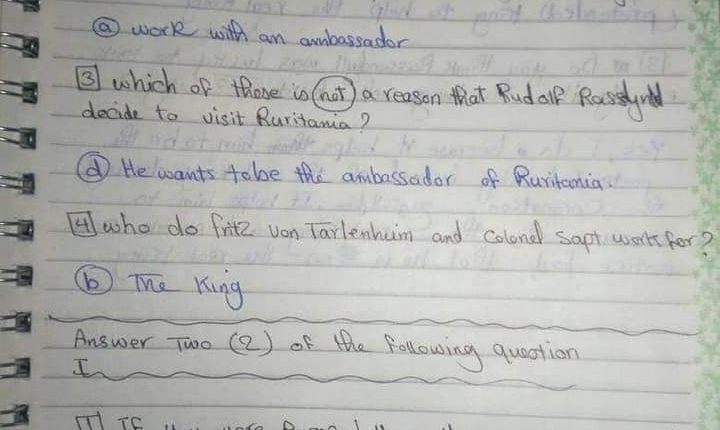 ⓐ work with an ambassador
3 which of those is not a reason that Rudolf Rassdynd
decide to visit Ruritania?
ⓓ He wants to be the ambassador of Ruritania.
4 who do fritz von Tarlenheim and Colonel Sapt works for?
ⓑ The King
Answer Two (2) of the following question
I
1 IF you were